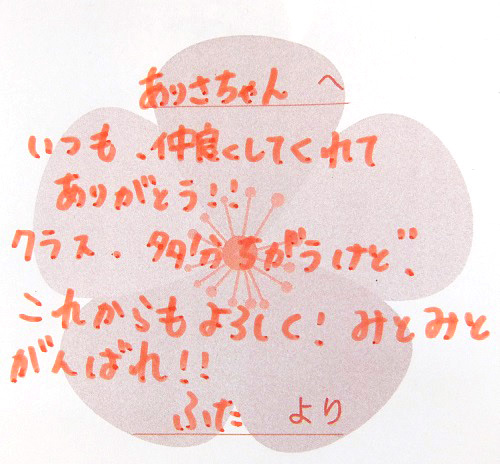 ありさちゃん へ
いつも、仲良くしてくれて
ありがとう!!
クラス、多分ちがうけど、
これからもよろしく!みとみと
がんばれ!!
ふた より